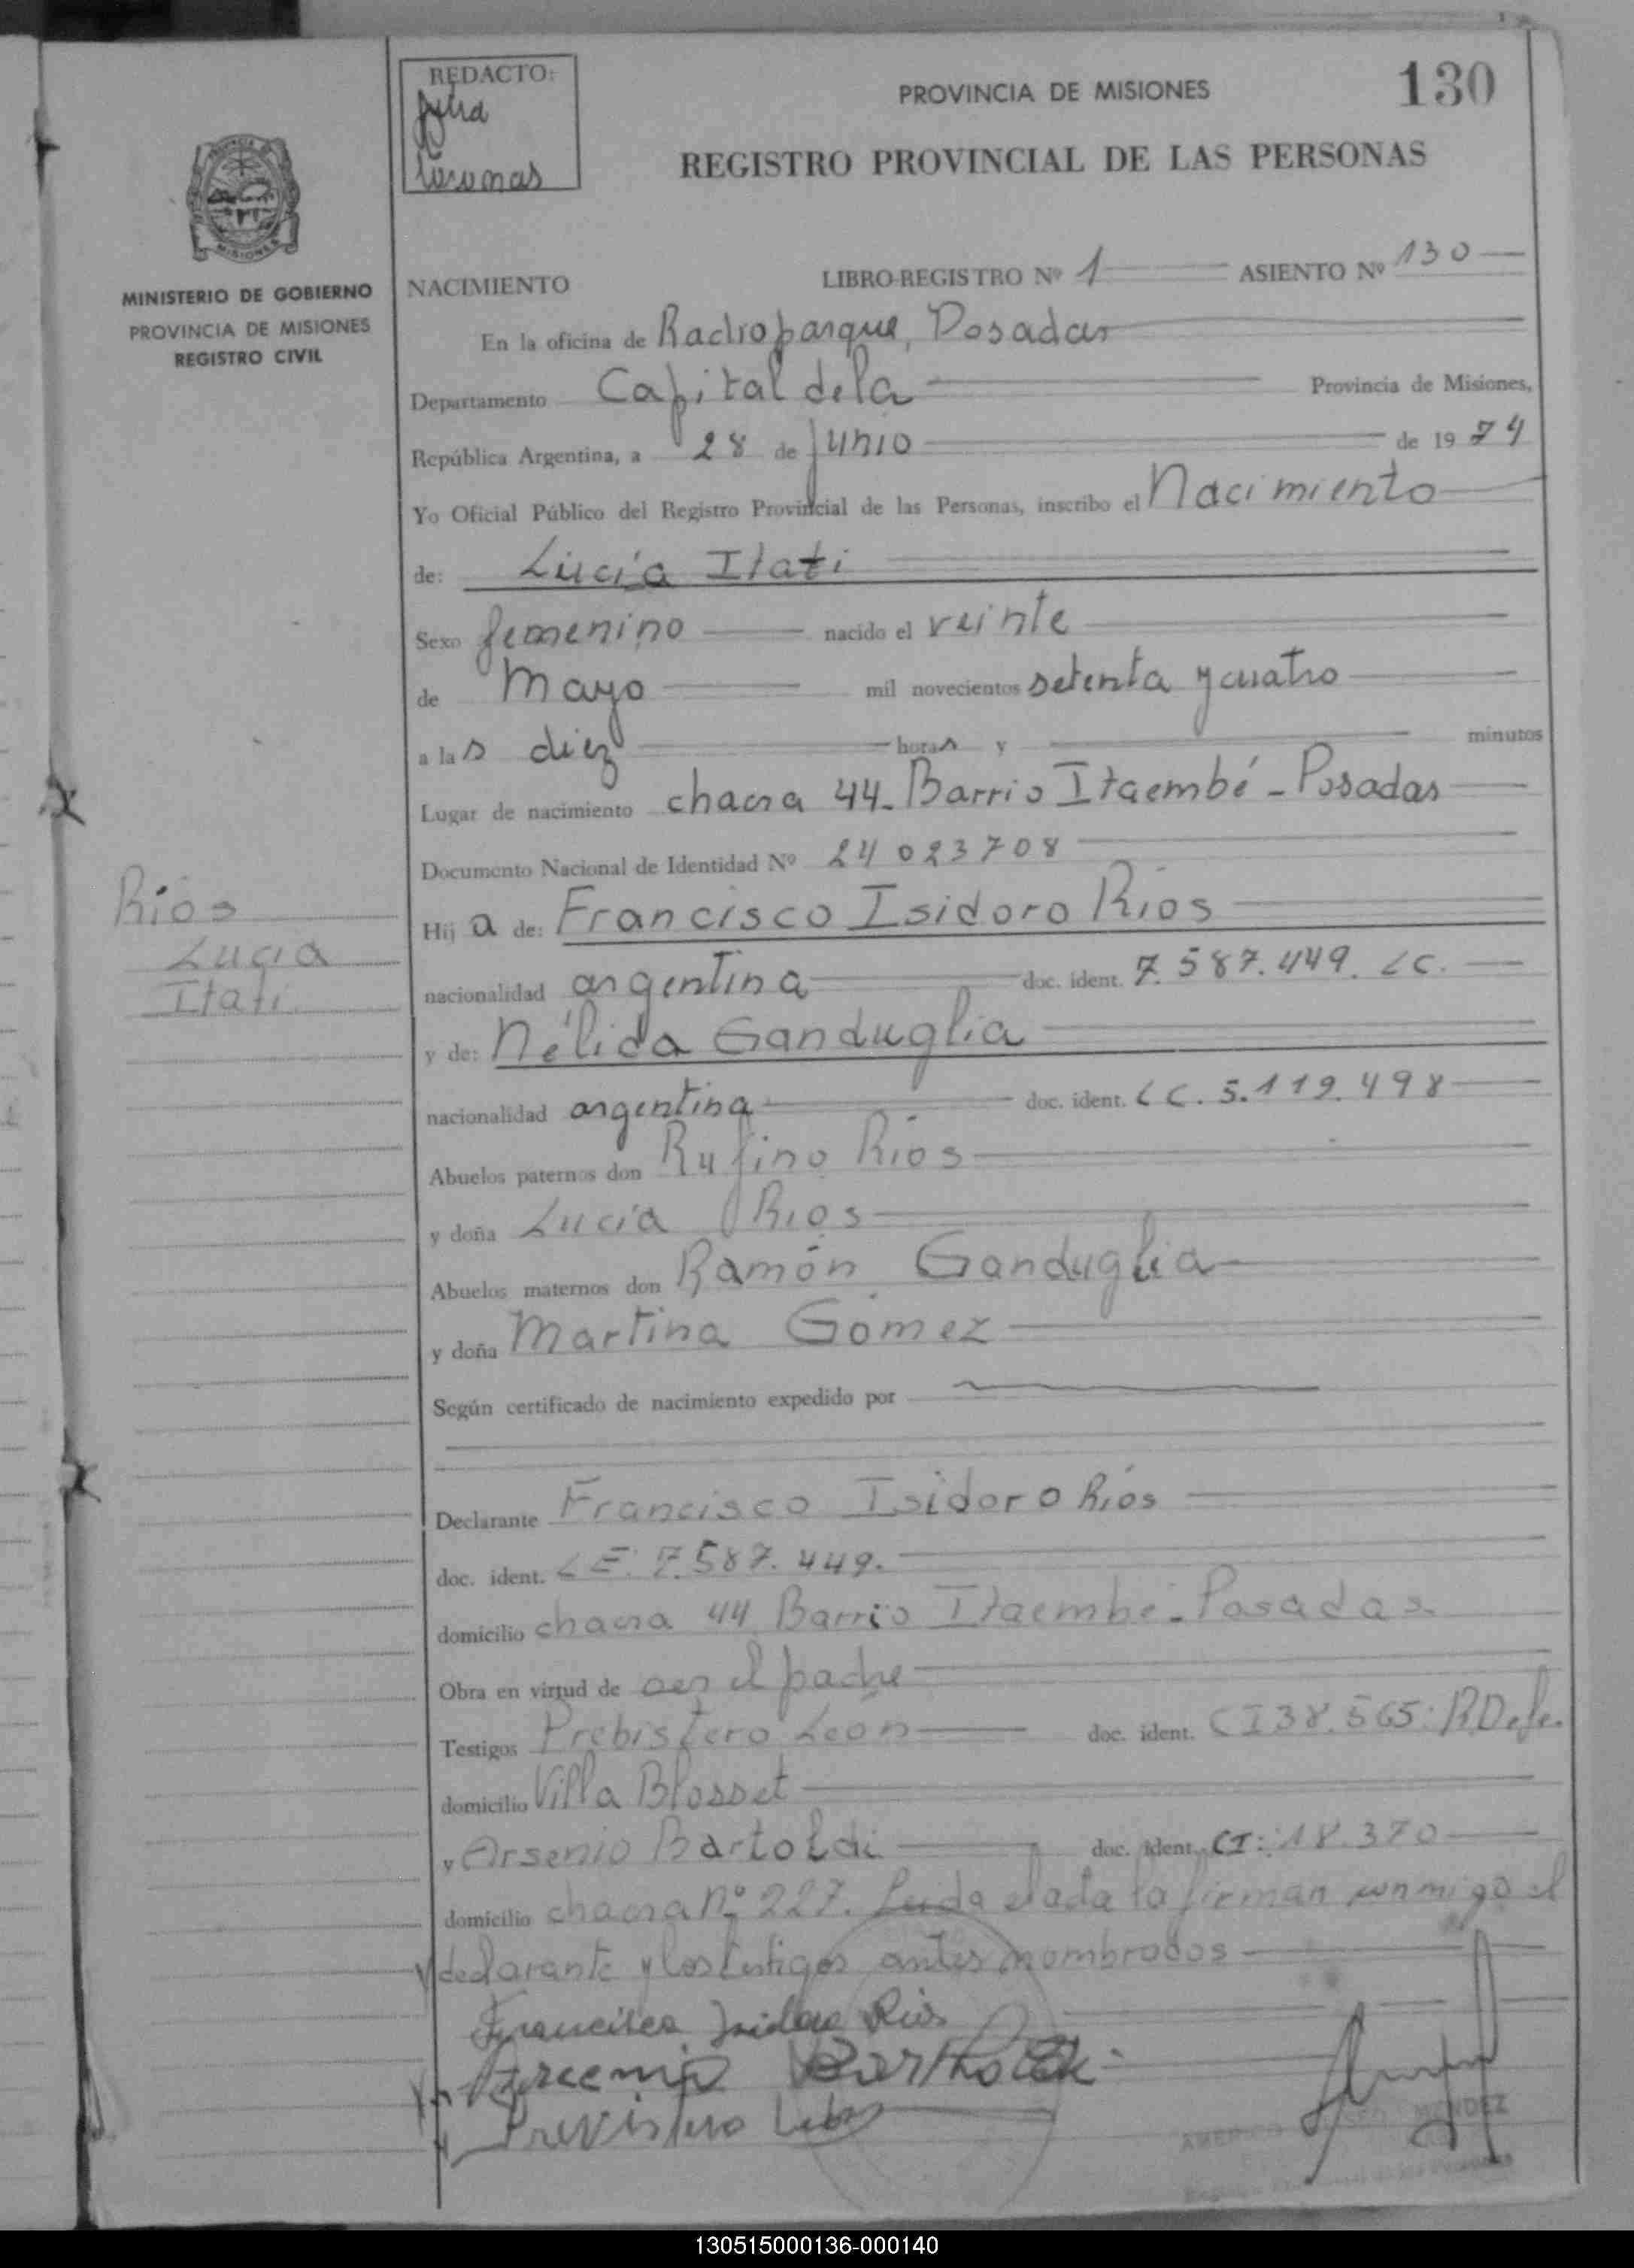 REDACTO:
PROVINCIA DE MISIONES
130
REGISTRO PROVINCIAL DE LAS PERSONAS
MISIONES
MINISTERIO DE GOBIERNO
PROVINCIA DE MISIONES
REGISTRO CIVIL
NACIMIENTO LIBRO-REGISTRO Nº 1 ASIENTO Nº 130
En la oficina de Radioparque, Posadas
Departamento Capital de la Provincia de Misiones,
República Argentina, a 28 de Junio de 1974
Yo Oficial Público del Registro Provincial de las Personas, inscribo el Nacimiento
de: Lucía Itati
Sexo femenino nacido el veinte
de Mayo mil novecientos setenta y cuatro
a las diez horas y minutos
Lugar de nacimiento chacra 44. Barrio Itaembé - Posadas
Documento Nacional de Identidad Nº 24023708
Ríos
Lucía
Itatí
Hija de: Francisco Isidoro Ríos
nacionalidad argentina doc. ident. 7.587.449. LC.
y de: Nélida Ganduglia
nacionalidad argentina doc. ident. LC. 5.119.498
Abuelos paternos don Rufino Ríos
y doña Lucía Ríos
Abuelos maternos don Ramón Ganduglia
y doña Martina Gómez
Según certificado de nacimiento expedido por
Declarante Francisco Isidoro Ríos
doc. ident. LE: 7.587.449.
domicilio chacra 44 Barrio Itaembé - Posadas
Obra en virtud de ser el padre
Testigos Prebistero León doc. ident. CI 38.565:
domicilio Villa Blosset
y Arsenio Bartoldi doc. ident. CI: 18.370
domicilio chacra Nº 227. Leída el acta la firman conmigo el
declarante y los testigos antes nombrados
Francisco Isidoro Rios
MENDEZ
130515000136-000140